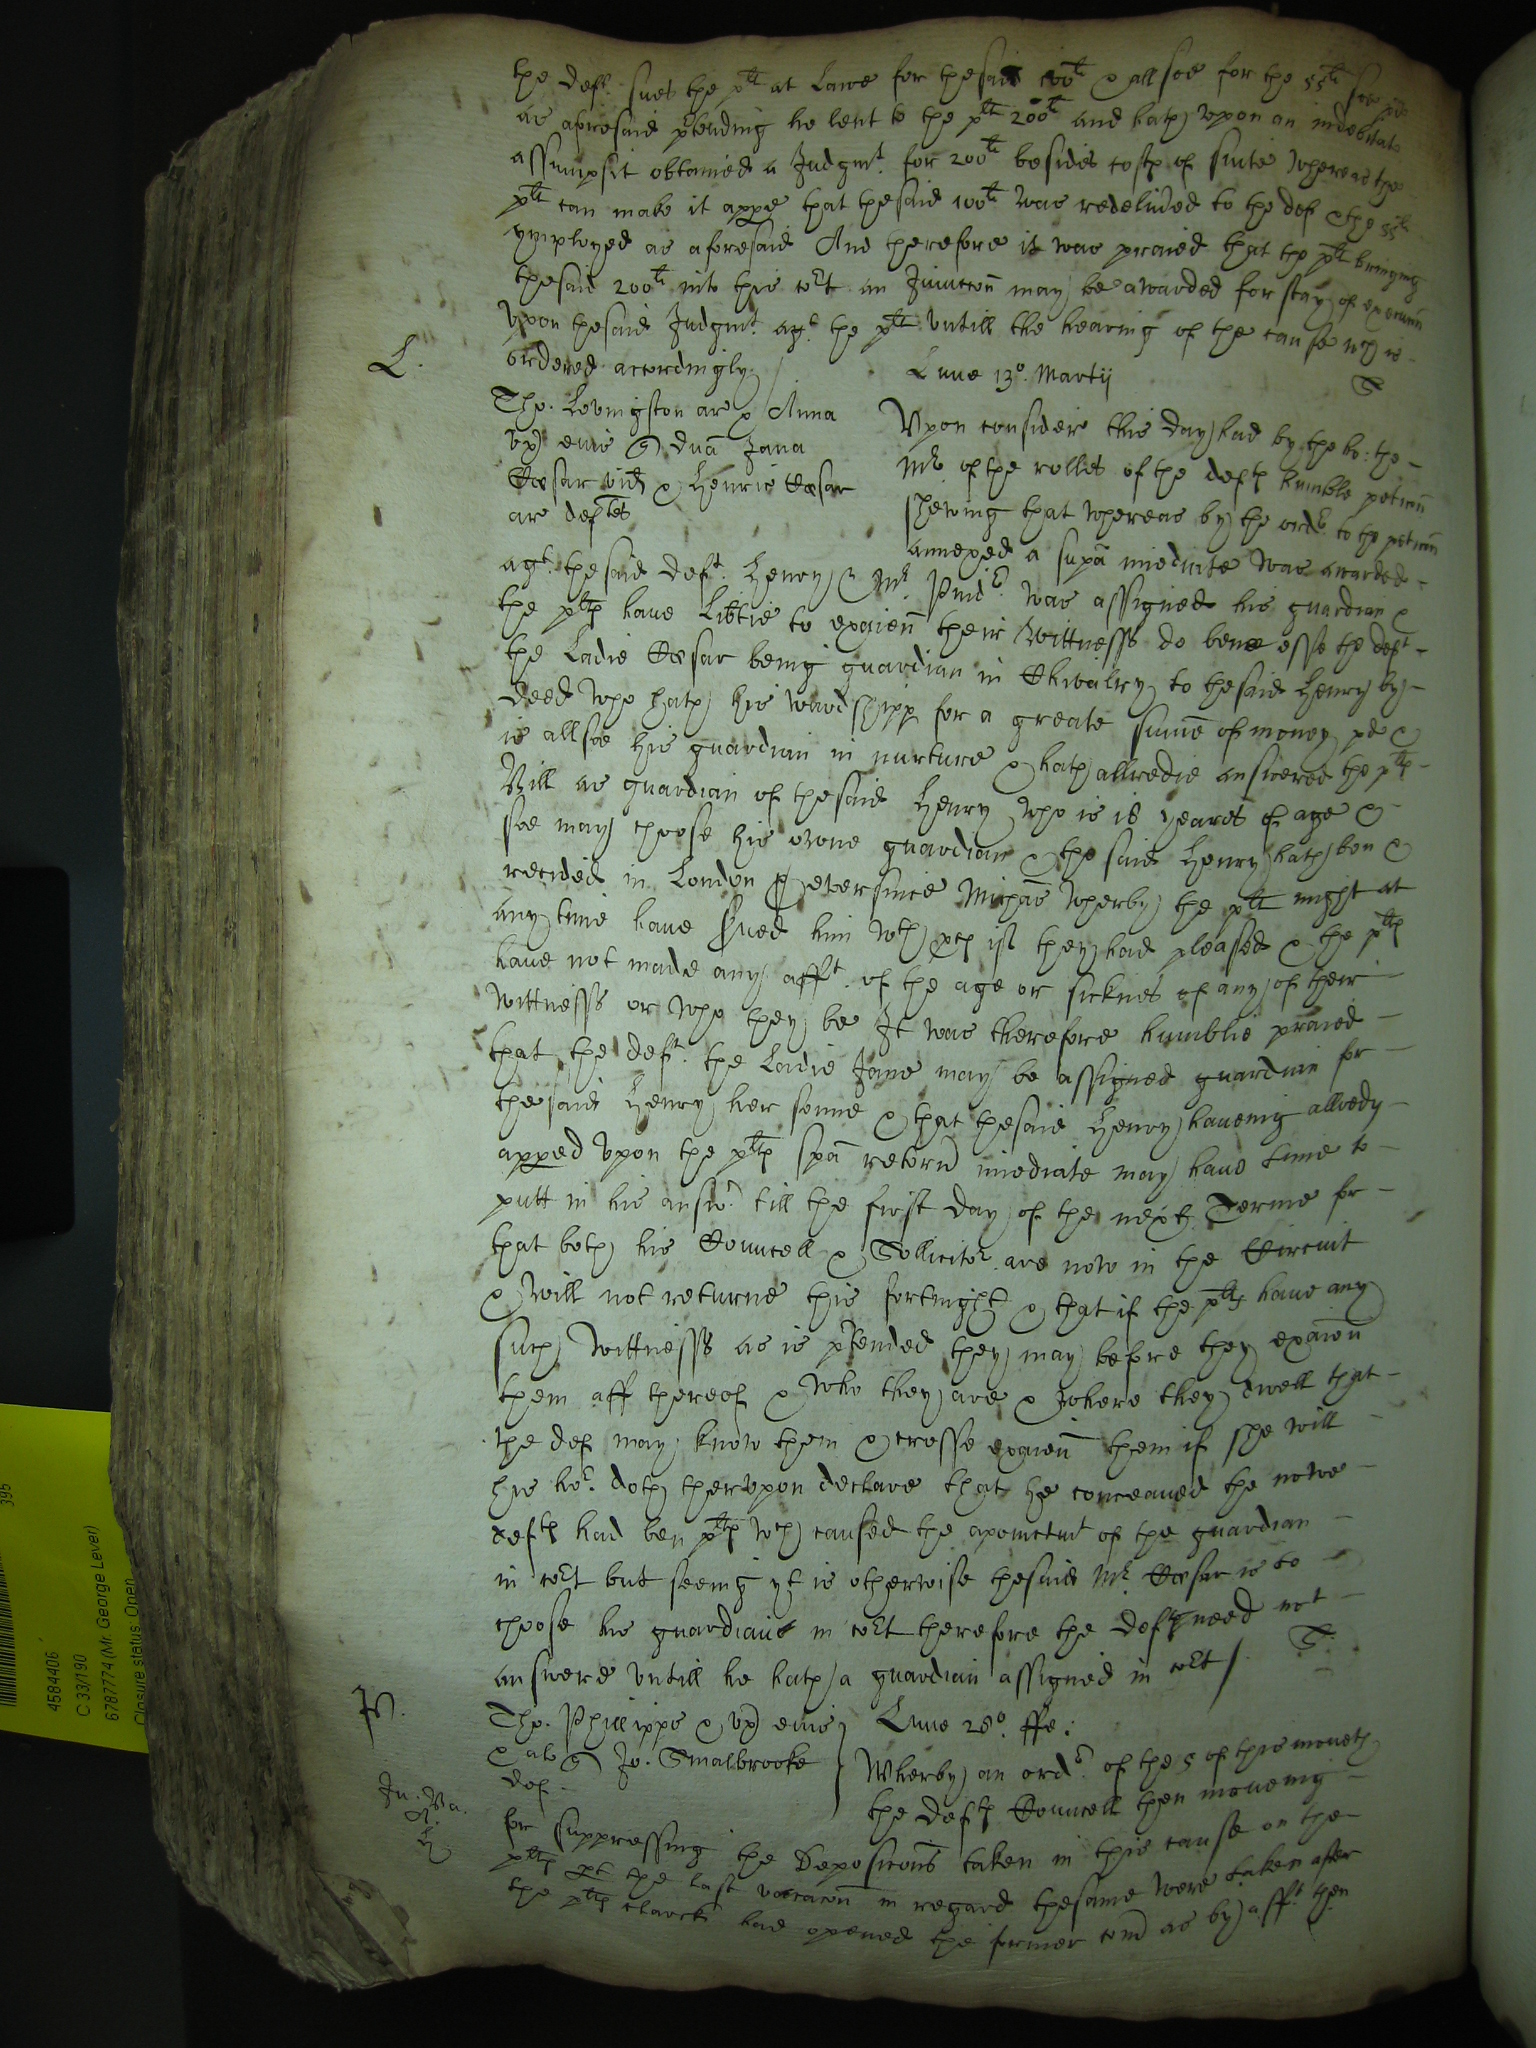 the deft sues the plt at Lawe for thesaid 100li & allsoe for the 55li soe
as aforesaid ptending he lent to the plt 200li and hath vpon an indebitatus
assumpsit obtained a Judgmt. for 200li besides costs of suite whereas the
plt can make it appe that thesaid 100li was redeliued to the def & the 55li
ymployed as aforesaid And therefore it was praied that the plt bringing
thesaid 200li into this cort an Jniunccon may be awarded for stay of execucon
vpon thesaid Judgmt. agt. the plt vntill the hearing of the cause wch is
ordered accordingly /
L.
Lune 13o. Martij
T
Tho. Levingston ar & Anna
vx eius q dna Jana
Cæsar vid & Henric Cæsar
ar deftes
Vpon consider this day had by the ho: the
Mr of the rolles of the defts humble peticon
shewing that whereas by the ordr. to the peticon
annexed a supa imediate was awarded
agt. thesaid deft. Henry & Mr. was assigned his guardian &
the plts haue Libtie to exaien their wittnesses de bene esse the deft
the Ladie Cæsar being guardian in Chivalry to thesaid Henry by
deed who hath his wardshipp for a greate summe of money pd &
is allsoe his guardian in nurture & hath allredie answered the plts
Bill as guardian of thesaid Henry who is 18 yeares of age &
soe may choose his owne guardian & the said Henry hath ben &
recided in London euer since Michas wherby the plt might at
any time haue sued him wth pces if they had pleased & the plts
haue not made any afft. of the age or sicknes of any of their
wittnesses or who they be It was therefore humblie praied
that the deft. the Ladie Jane may be assigned guardian for
the said Henry her sonne & that thesaid Henry haueing allredy
apped vpon the plts spa retorn imediate may haue time to
putt in his answr. till the first day of the next Terme for
that both his Councell & Sollicitor. are now in the Circuit
& will not returne this fortnight & that if the plts haue any
such wittnesses as is ptended they may before they exaien
them aff thereof & who they are & where they dwell that
the def may know them & crosse exaien them if she will
his hor. doth therevpon declare that he conceaued the nowe
defts had ben plts wch caused the apointmt of the guardian
in cort but seeing yt is otherwise thesaid Mr. Cæsar is to
choose his guardiane in cort therefore the defts need not
answere vntill he hath a guardian assigned in cort /
T.
P.
Tho. Phillipps & vx eius
& al q Jo. Smalbrooke
def.
Lune 28o. ffe.
Jn. Ba.
Wherby an ordr. of the 5 of this moneth
the defts Councell then moueing
for suppressing the Deposicons taken in this cause on the
plts pt the last vacacon in regard thesame were taken after
the plts clarck had opened the former com as by afft. then
395
4584406
C 33/190
6787774 (Mr. George Lever)
Closure status: Open